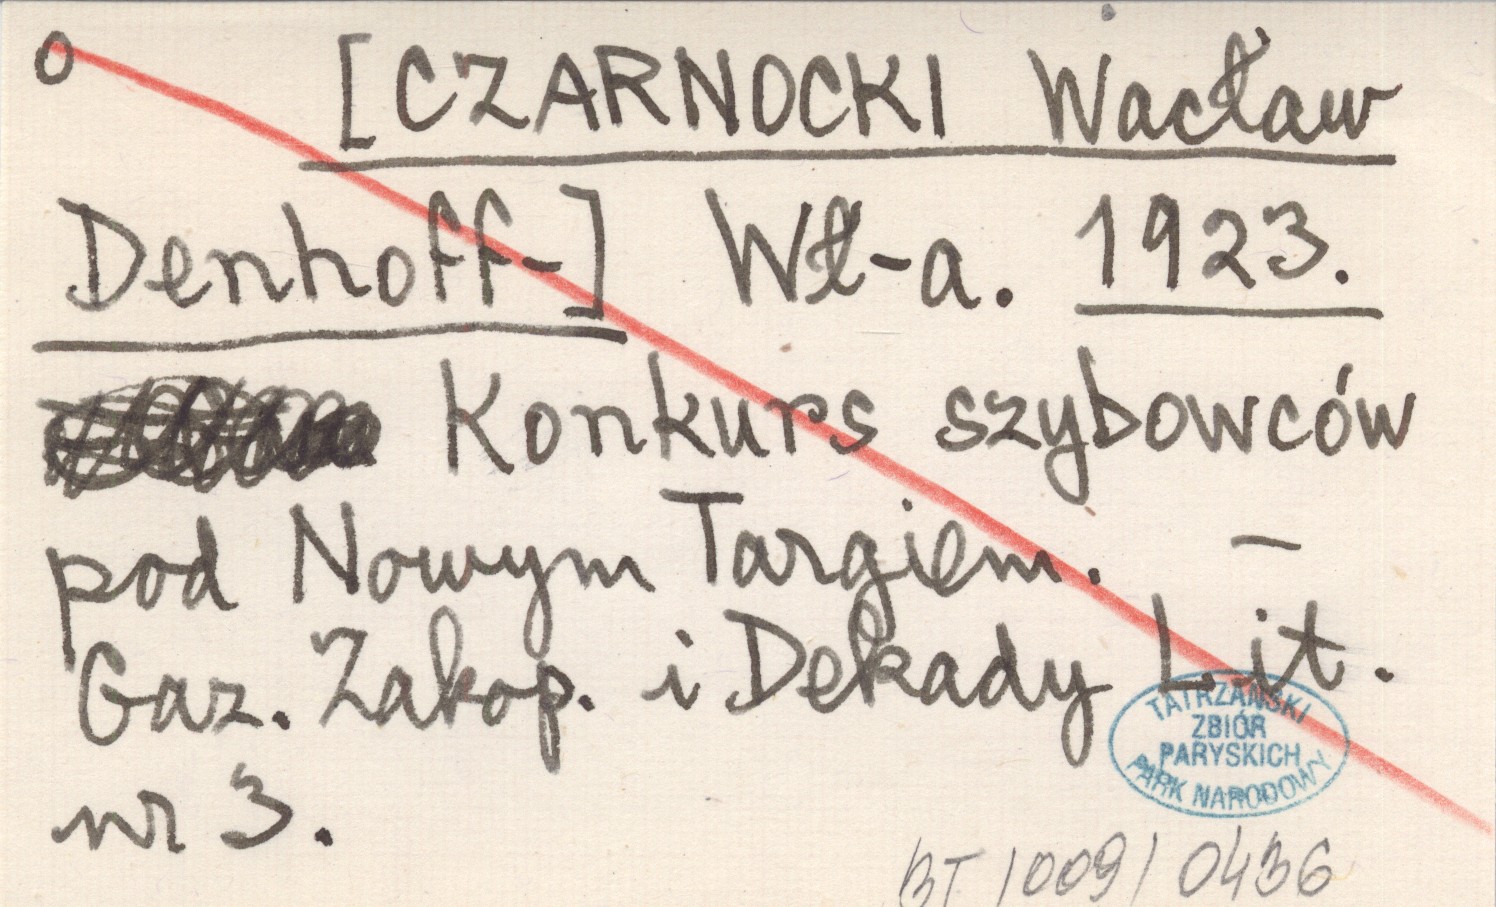 o [CZARNOCKI Wacław
Denhoff-] Wł-a. 1923.
Konkurs szybowców
pod Nowym Targiem. –
Gaz. Zakop. i Dekady Lit.
nr 3.
TATRZAŃSKI
ZBIÓR
PARYSKICH
PARK NARODOWY
BT/009/0436